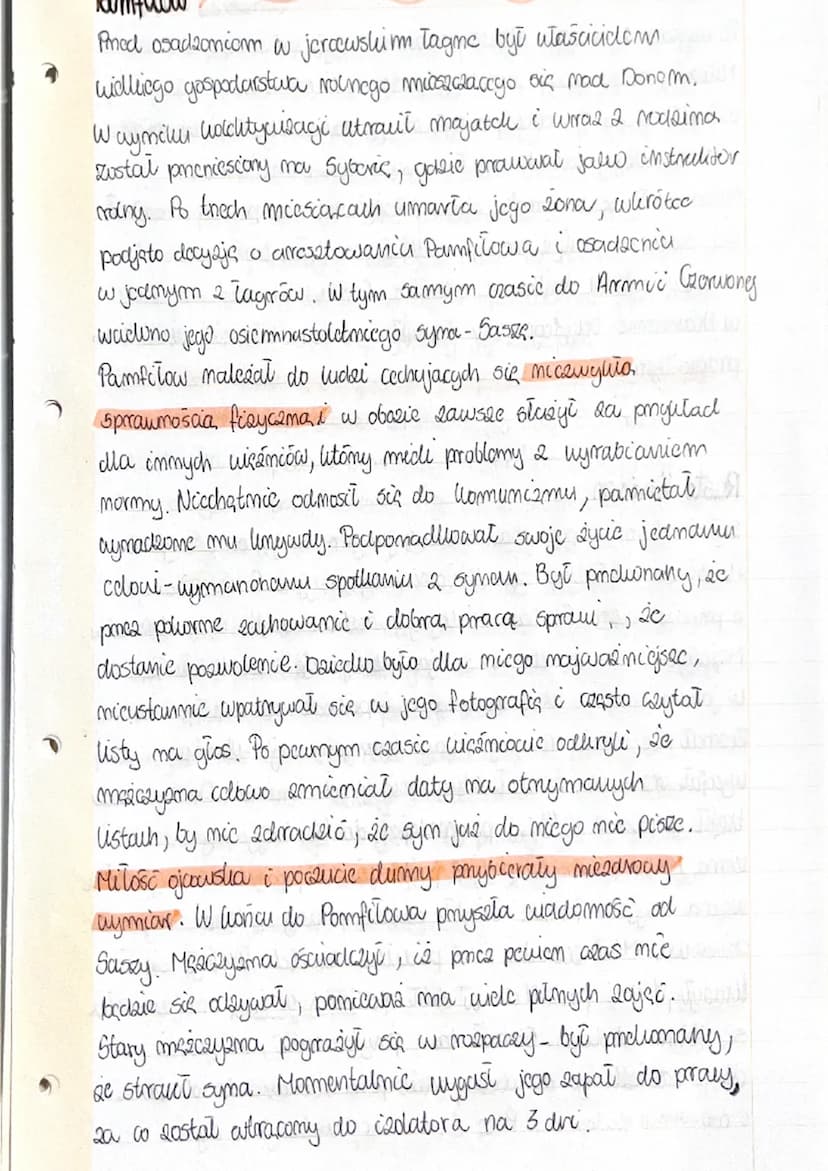 Pamfiłow
Przed osadzeniem w jercewskim łagrze był właścicielem
wielkiego gospodarstwa rolnego mieszczącego się nad Donem.
W wyniku kolektywizacji utracił majątek i wraz z rodziną
został przeniesiony na Syberię, gdzie pracował jako instruktor
rolny. Po trzech miesiącach umarła jego żona, wkrótce
podjęto decyzję o aresztowaniu Pamfiłowa i osadzeniu
w jednym z łagrów. W tym samym czasie do Armii Czerwonej
wcielono jego osiemnastoletniego syna - Saszę.
Pamfiłow należał do ludzi cechujących się niezwykłą
sprawnością fizyczną i w obozie zawsze służył za przykład
dla innych więźniów, którzy mieli problemy z wyrabianiem
normy. Niechętnie odnosił się do komunizmu, pamiętał
wyrządzone mu krzywdy. Podporządkował swoje życie jednemu
celowi - wymarzonemu spotkaniu z synem. Był przekonany, że
przez pokorne zachowanie i dobrą pracę sprawi, że
dostanie pozwolenie. Dziecko było dla niego najważniejsze,
nieustannie wpatrywał się w jego fotografię i często czytał
listy na głos. Po pewnym czasie więźniowie odkryli, że
mężczyzna celowo zmieniał daty na otrzymanych
listach, by nie zdradzić, że syn już do niego nie pisze.
Miłość ojcowska i poczucie dumy przybierały niezdrowy
wymiar. W końcu do Pamfiłowa przyszła wiadomość od
Saszy. Mężczyzna oświadczył, iż przez pewien czas nie
będzie się odzywał, ponieważ ma wiele pilnych zajęć.
Stary mężczyzna pogrążył się w rozpaczy - był przekonany,
że stracił syna. Momentalnie wygasł jego zapał do pracy,
za co został wtrącony do izolatora na 3 dni.